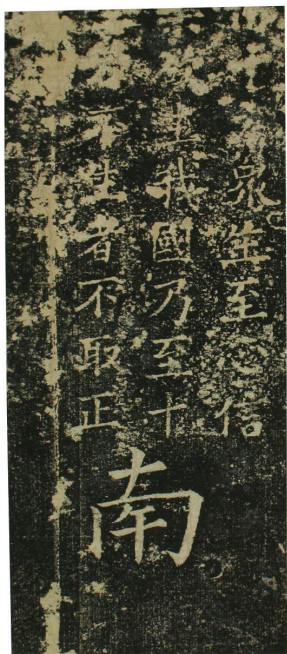 衆生至心信
生我國乃至十
不生者不取正
南